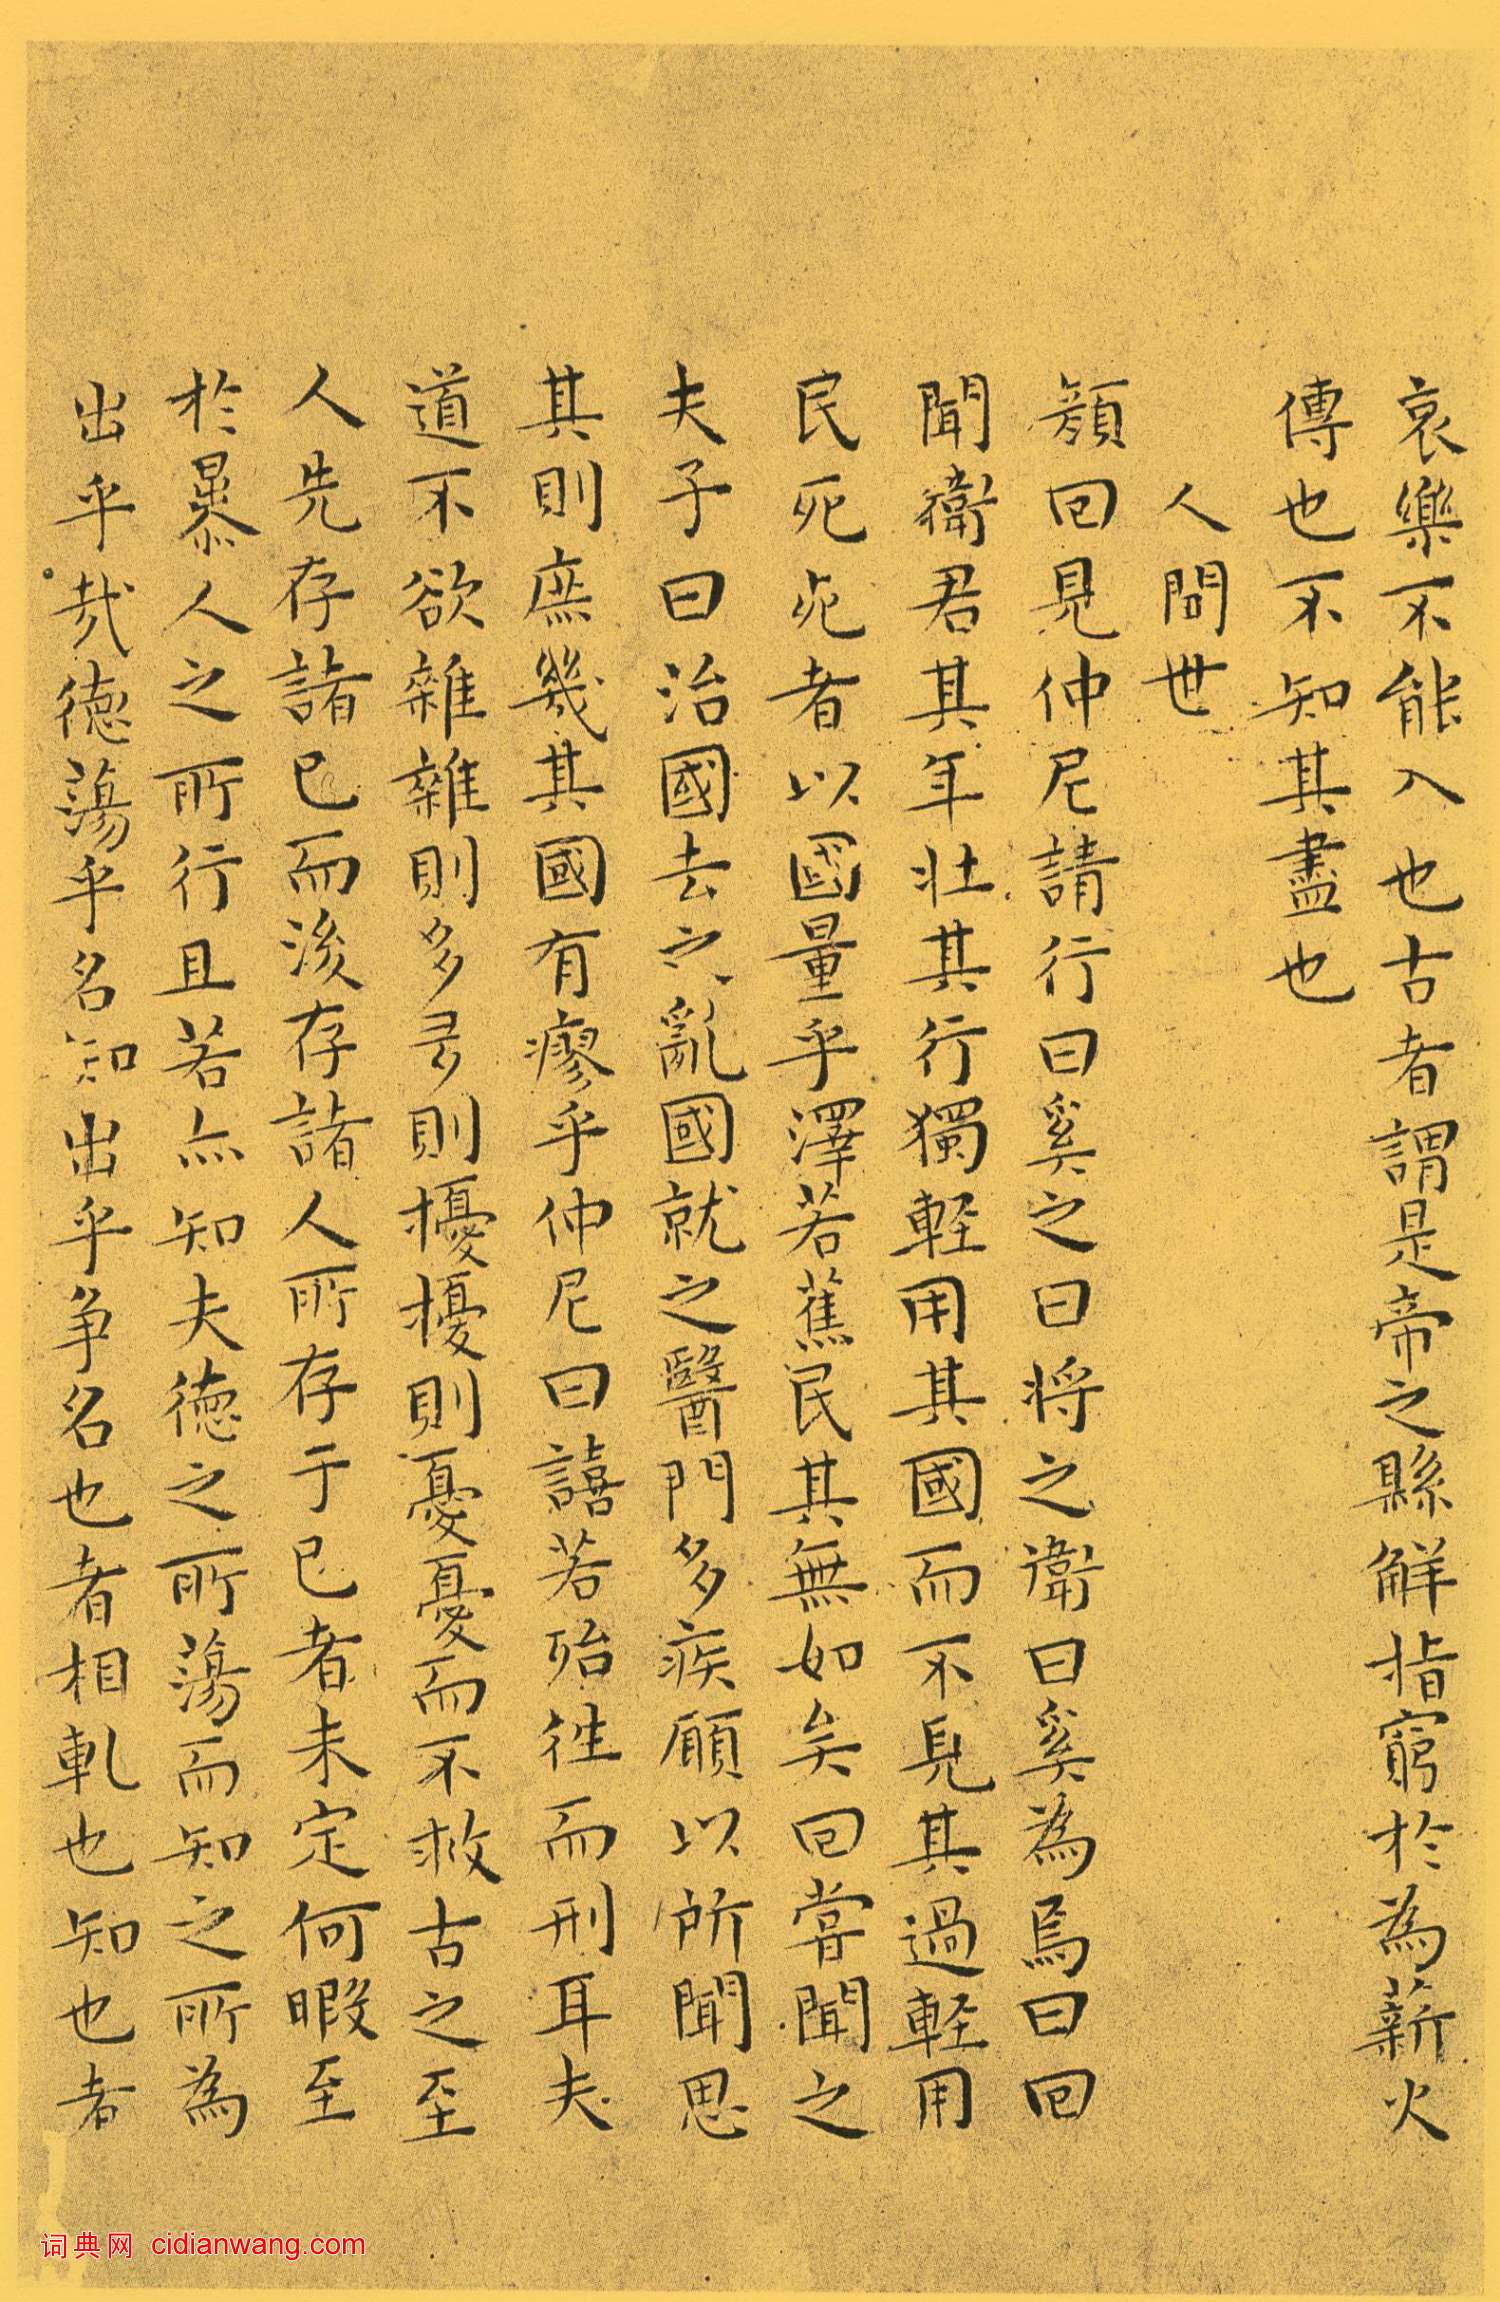 哀樂不能入也古者謂是帝之縣解指窮於為薪火
傳也不知其盡也
人間世
顏回見仲尼請行曰奚之曰将之衛曰奚為焉曰回
聞衛君其年壮其行獨軽用其國而不見其過軽用
民死死者以國量乎澤若蕉民其無如矣回嘗聞之
夫子曰治國去之亂國就之醫門多疾願以所聞思
其則庶幾其國有瘳乎仲尼曰譆若殆徃而刑耳夫
道不欲雜雜則多多則擾擾則憂憂而不救古之至
人先存諸已而後存諸人所存于已者未定何暇至
於暴人之所行且若亦知夫徳之所蕩而知之所為
出乎㢤徳蕩乎名知出乎争名也者相軋也知也者
词典网 cidianwang.com